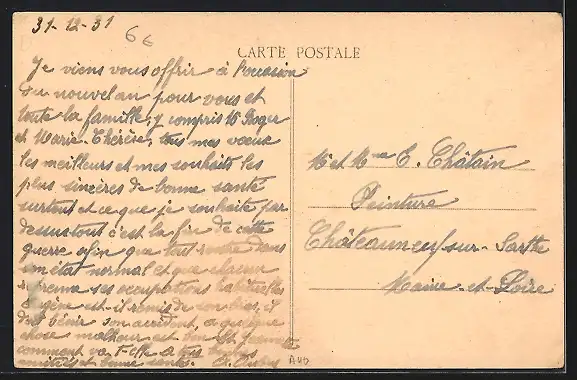 31-12-31
66
CARTE POSTALE
Je viens vous offrir à l'occasion
du nouvel an pour vous et
toute la famille, y compris Mr Roger
et Marie-Thérèse, tous mes vœux
les meilleurs et mes souhaits les
plus sincères de bonne santé
surtout et ce que je souhaite par
dessus tout c'est la fin de cette
guerre afin que tout rentre dans
son état normal et que chacun
reprenne ses occupations habituelles
Eugène est-il remis de son bras, il
doit bénir son accident, a quelque
chose malheur est bon
comment va t-elle à tous
amitiés et bonne santé.
Mr et Mme E. Châtain
Peinture
Châteauneuf-sur-Sarthe
Maine-et-Loire